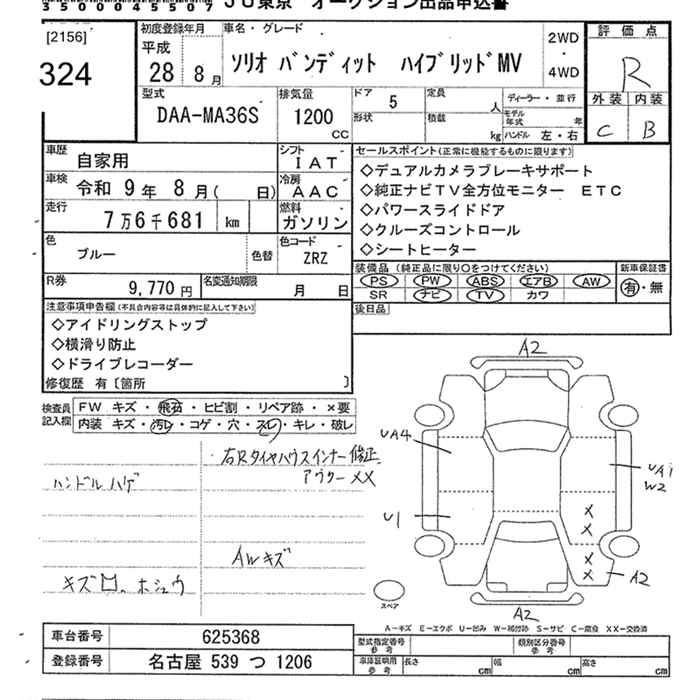 35000455 07 JU東京 オークション出品申込書
[2156]
324
初度登録年月 車名・グレード
平成 28年 8月
ソリオ バンディット ハイブリッドMV
2WD・4WD
評価点
R
外装 内装
C B
型式 DAA-MA36S
排気量 1200 cc
ドア 5 定員 人
形状 積載 kg
ディーラー・並行
モデル年式 年
ハンドル 左・右
車歴 自家用
シフト IAT
車検 令和 9年 8月( 日)
冷房 AAC
走行 7万6千681 km
燃料 ガソリン
色 ブルー 色替
色コード ZRZ
R券 9,770円
名変通知期限 月 日
セールスポイント(正常に機能するものに限ります)
◇デュアルカメラブレーキサポート
◇純正ナビTV全方位モニター ETC
◇パワースライドドア
◇クルーズコントロール
◇シートヒーター
装備品 (純正品に限り○をつけてください) 新車保証書
PS PW ABS エアB AW 有・無
SR ナビ TV カワ
後日品
注意事項申告欄(不具合内容等は具体的に記入して下さい)
◇アイドリングストップ
◇横滑り防止
◇ドライブレコーダー
修復歴 有〔箇所 〕
検査員記入欄
FW キズ・飛石・ヒビ割・リペア跡・×要
内装 キズ・汚レ・コゲ・穴・スレ・キレ・破レ
右Rタイヤハウスインナー修正
アウターXX
ハンドルハゲ
AWキズ
キズ凹。ホシュウ
A2
UA4
UA1
W2
U1
X
X
X
X
A2
A2
スペア
A-キズ E-エクボ U-凹み W-補修跡 S-サビ C-腐食 XX-交換済
車台番号 625368
登録番号 名古屋 539 つ 1206
型式指定番号 参考 類別区分番号 参考
車庫証明用 参考 長さ cm 幅 cm 高さ cm